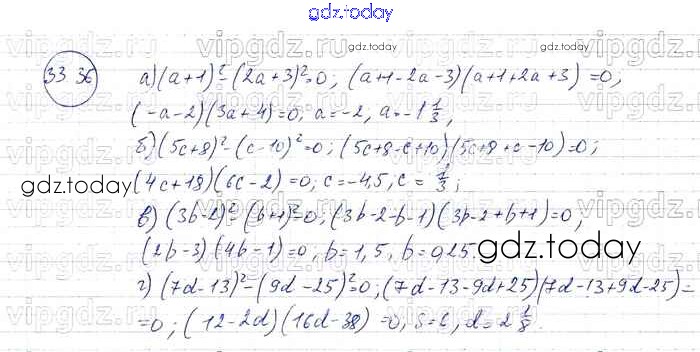 gdz.today
33.36
а) (a+1)²-(2a+3)²=0; (a+1-2a-3)(a+1+2a+3)=0;
(-a-2)(3a+4)=0; a=-2, a=-1 1/3;
б) (5c+8)²-(c-10)²=0; (5c+8-c+10)(5c+8+c-10)=0;
(4c+18)(6c-2)=0; c=-4,5, c=1/3;
в) (3b-2)²-(b+1)²=0; (3b-2-b-1)(3b-2+b+1)=0;
(2b-3)(4b-1)=0; b=1,5, b=0,25.
г) (7d-13)²-(9d-25)²=0; (7d-13-9d+25)(7d-13+9d-25)=
=0; (12-2d)(16d-38)=0, S=6, d=2 1/8.
gdz.today
gdz.today
gdz.today
vipgdz.ru